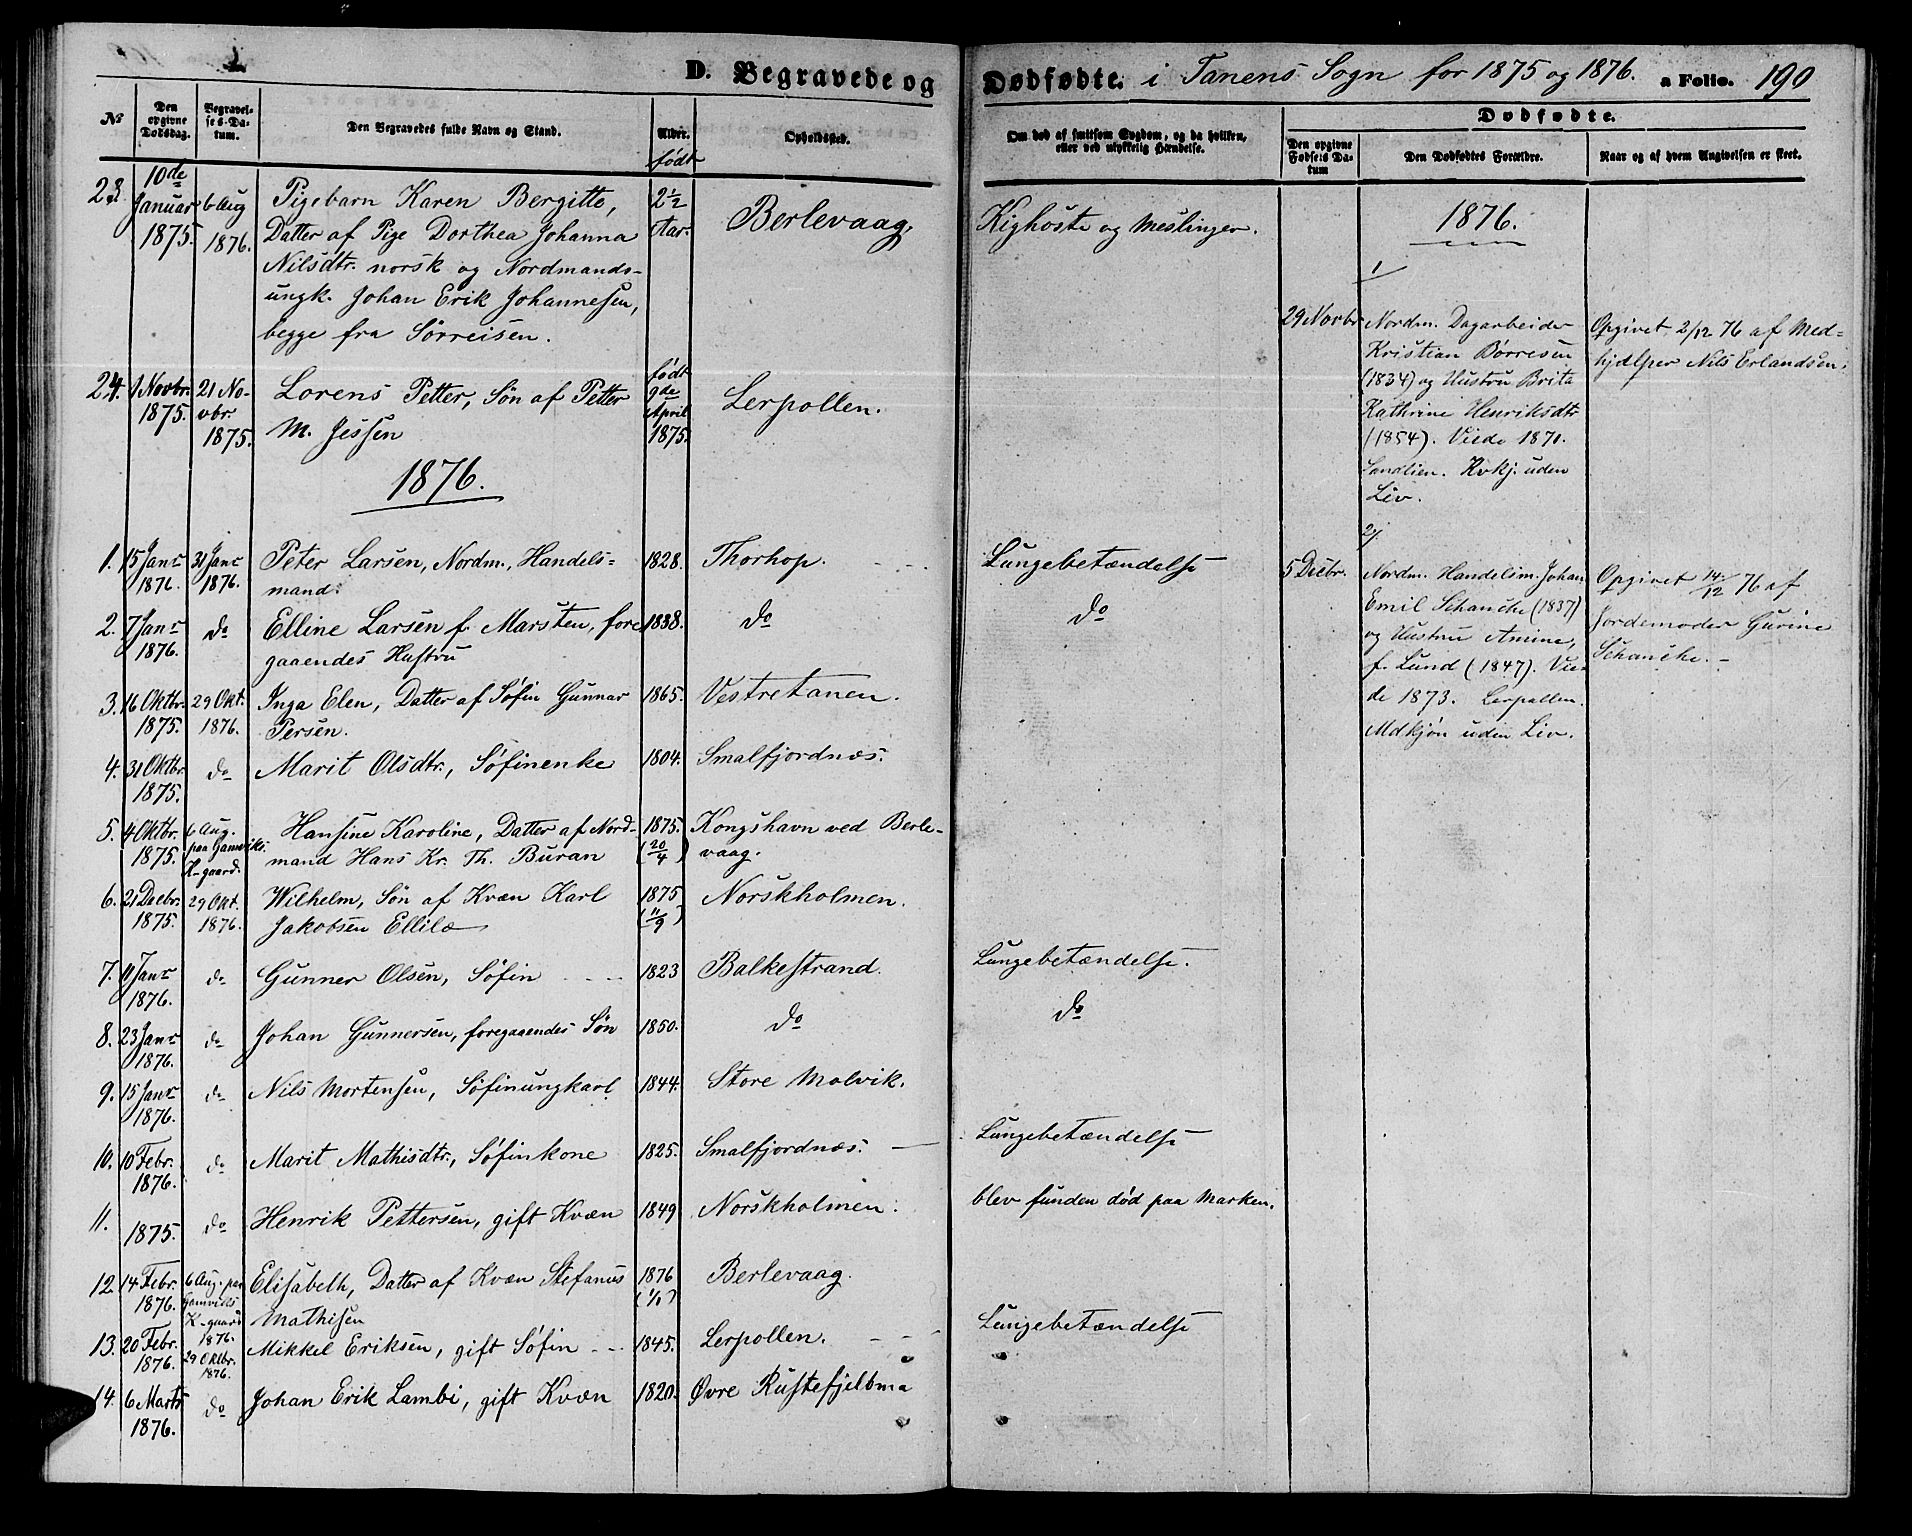 D. Begravede og Dødfødte. i Tanens Sogn for 1875 og 1876. a Folio. 190
No
Den opgivne Dødsdag.
Begravelses-Datum.
Den Begravedes fulde Navn og Stand.
Alder.
født
Opholdssted.
Om død af smitsom Sygdom, og da hvilken, eller ved ulykkelig Hændelse.
Dødfødte.
Den opgivne Fødsels Datum
Den Dødfødtes Forældre.
Naar og af hvem Angivelsen er skeet.
23. 10de Januar 1875. 6 Aug 1876. Pigebarn Karen Bergitte, 2½ Aar. Berlevaag. Kighoste og Meslinger.
Datter af Pige Dorthea Johanna
Nilsdtr. norsk og Nordmands-
ungk. Johan Erik Johannesen,
begge fra Sørreisen.
24. 1 Novbr. 1875. 21 Novbr. 1875. Lorens Petter, Søn af Petter født 9de April 1875. Lerpollen.
M. Jessen
1876.
1. 15 Janr 1876. 31 Janr 1876. Peter Larsen, Nordm., Handels- 1828. Thorhop. Lungebetændelse
mand.
2. 7 Janr 1876. do Elline Larsen f. Marsten, fore 1838. do do
gaaendes Hustru
3. 16 Oktbr. 1875. 29 Okt. 1876. Inga Elen, Datter af Søfin Gunnar 1865. Vestretanen.
Persen.
4. 31 Oktbr. 1875. do Marit Olsdtr., Søfinenke 1804. Smalfjordnæs.
5. 4 Oktbr. 1875. 6 Aug. paa Gamviks K-gaard. Hansine Karoline, Datter af Nord- 1875. (20/4) Kongshavn ved Berle-
mand Hans Kr. Th. Buran vaag.
6. 21 Decbr. 1875. 29 Okt. 1876. Wilhelm, Søn af Kvæn Karl 1875 (11/9) Norskholmen.
Jakobsen Ellilæ
7. 11 Janr 1876. do Gunner Olsen, Søfin 1823 Balkestrand. Lungebetændelse.
8. 23 Janr 1876. do Johan Gunnersen, foregaaendes Søn 1850. do do
9. 15 Janr 1876. do Nils Mortensen, Søfinungkarl 1844. Store Molvik.
10. 10 Febr. 1876. do Marit Mathisdtr., Søfinkone 1825. Smalfjordnæs. Lungebetændelse
11. 1875. do Henrik Pettersen, gift Kvæn 1849 Norskholmen. blev funden død paa Marken.
12. 14 Febr. 1876. 6 Aug. paa Gamviks K-gaard 1876. Elisabeth, Datter af Kvæn Stefanus 1876 Berlevaag.
Mathisen
13. 20 Febr. 1876. 29 Oktbr. 1876. Mikkel Eriksen, gift Søfin 1845. Lerpollen. Lungebetændelse
14. 6 Marts 1876. do Johan Erik Lambi, gift Kvæn 1820. Øvre Rustefjelbma
1876.
1/
29 Novbr Nordm. Dagarbeider Opgivet 2/12 76 af Med-
Kristian Børresen hjælper Nils Erlandsen.
(1834) og Hustru Brita
Kathrine Henriksdtr.
(1854). Viede 1871.
Sandlien. Kvkj. uden
Liv.
2/
5 Decbr. Nordm. Handelsm. Johan Opgivet 14/12 76 af
Emil Schanche (1837) Jordemoder Gurine
og Hustru Amine, Schanche.
f. Lund (1847). Vie-
de 1873. Lerpollen.
Mdkjøn uden Liv.